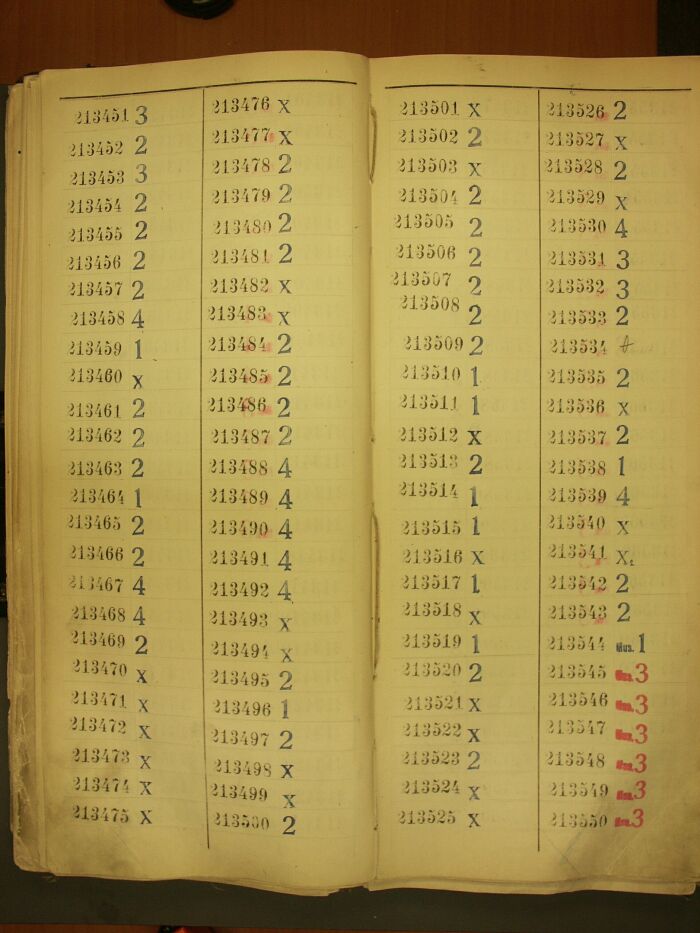 213451 3
213452 2
213453 3
213454 2
213455 2
213456 2
213457 2
213458 4
213459 1
213460 x
213461 2
213462 2
213463 2
213464 1
213465 2
213466 2
213467 4
213468 4
213469 2
213470 x
213471 x
213472 x
213473 x
213474 x
213475 x
213476 x
213477 x
213478 2
213479 2
213480 2
213481 2
213482 x
213483 x
213484 2
213485 2
213486 2
213487 2
213488 4
213489 4
213490 4
213491 4
213492 4
213493 x
213494 x
213495 2
213496 1
213497 2
213498 x
213499 x
213500 2
213501 x
213502 2
213503 x
213504 2
213505 2
213506 2
213507 2
213508 2
213509 2
213510 1
213511 1
213512 x
213513 2
213514 1
213515 1
213516 x
213517 1
213518 x
213519 1
213520 2
213521 x
213522 x
213523 2
213524 x
213525 x
213526 2
213527 x
213528 2
213529 x
213530 4
213531 3
213532 3
213533 2
213534
213535 2
213536 x
213537 2
213538 1
213539 4
213540 x
213541 x
213542 2
213543 2
213544 Mus. 1
213545 Mus. 3
213546 3
213547 Mus. 3
213548 Mus. 3
213549 Mus. 3
213550 Mus. 3